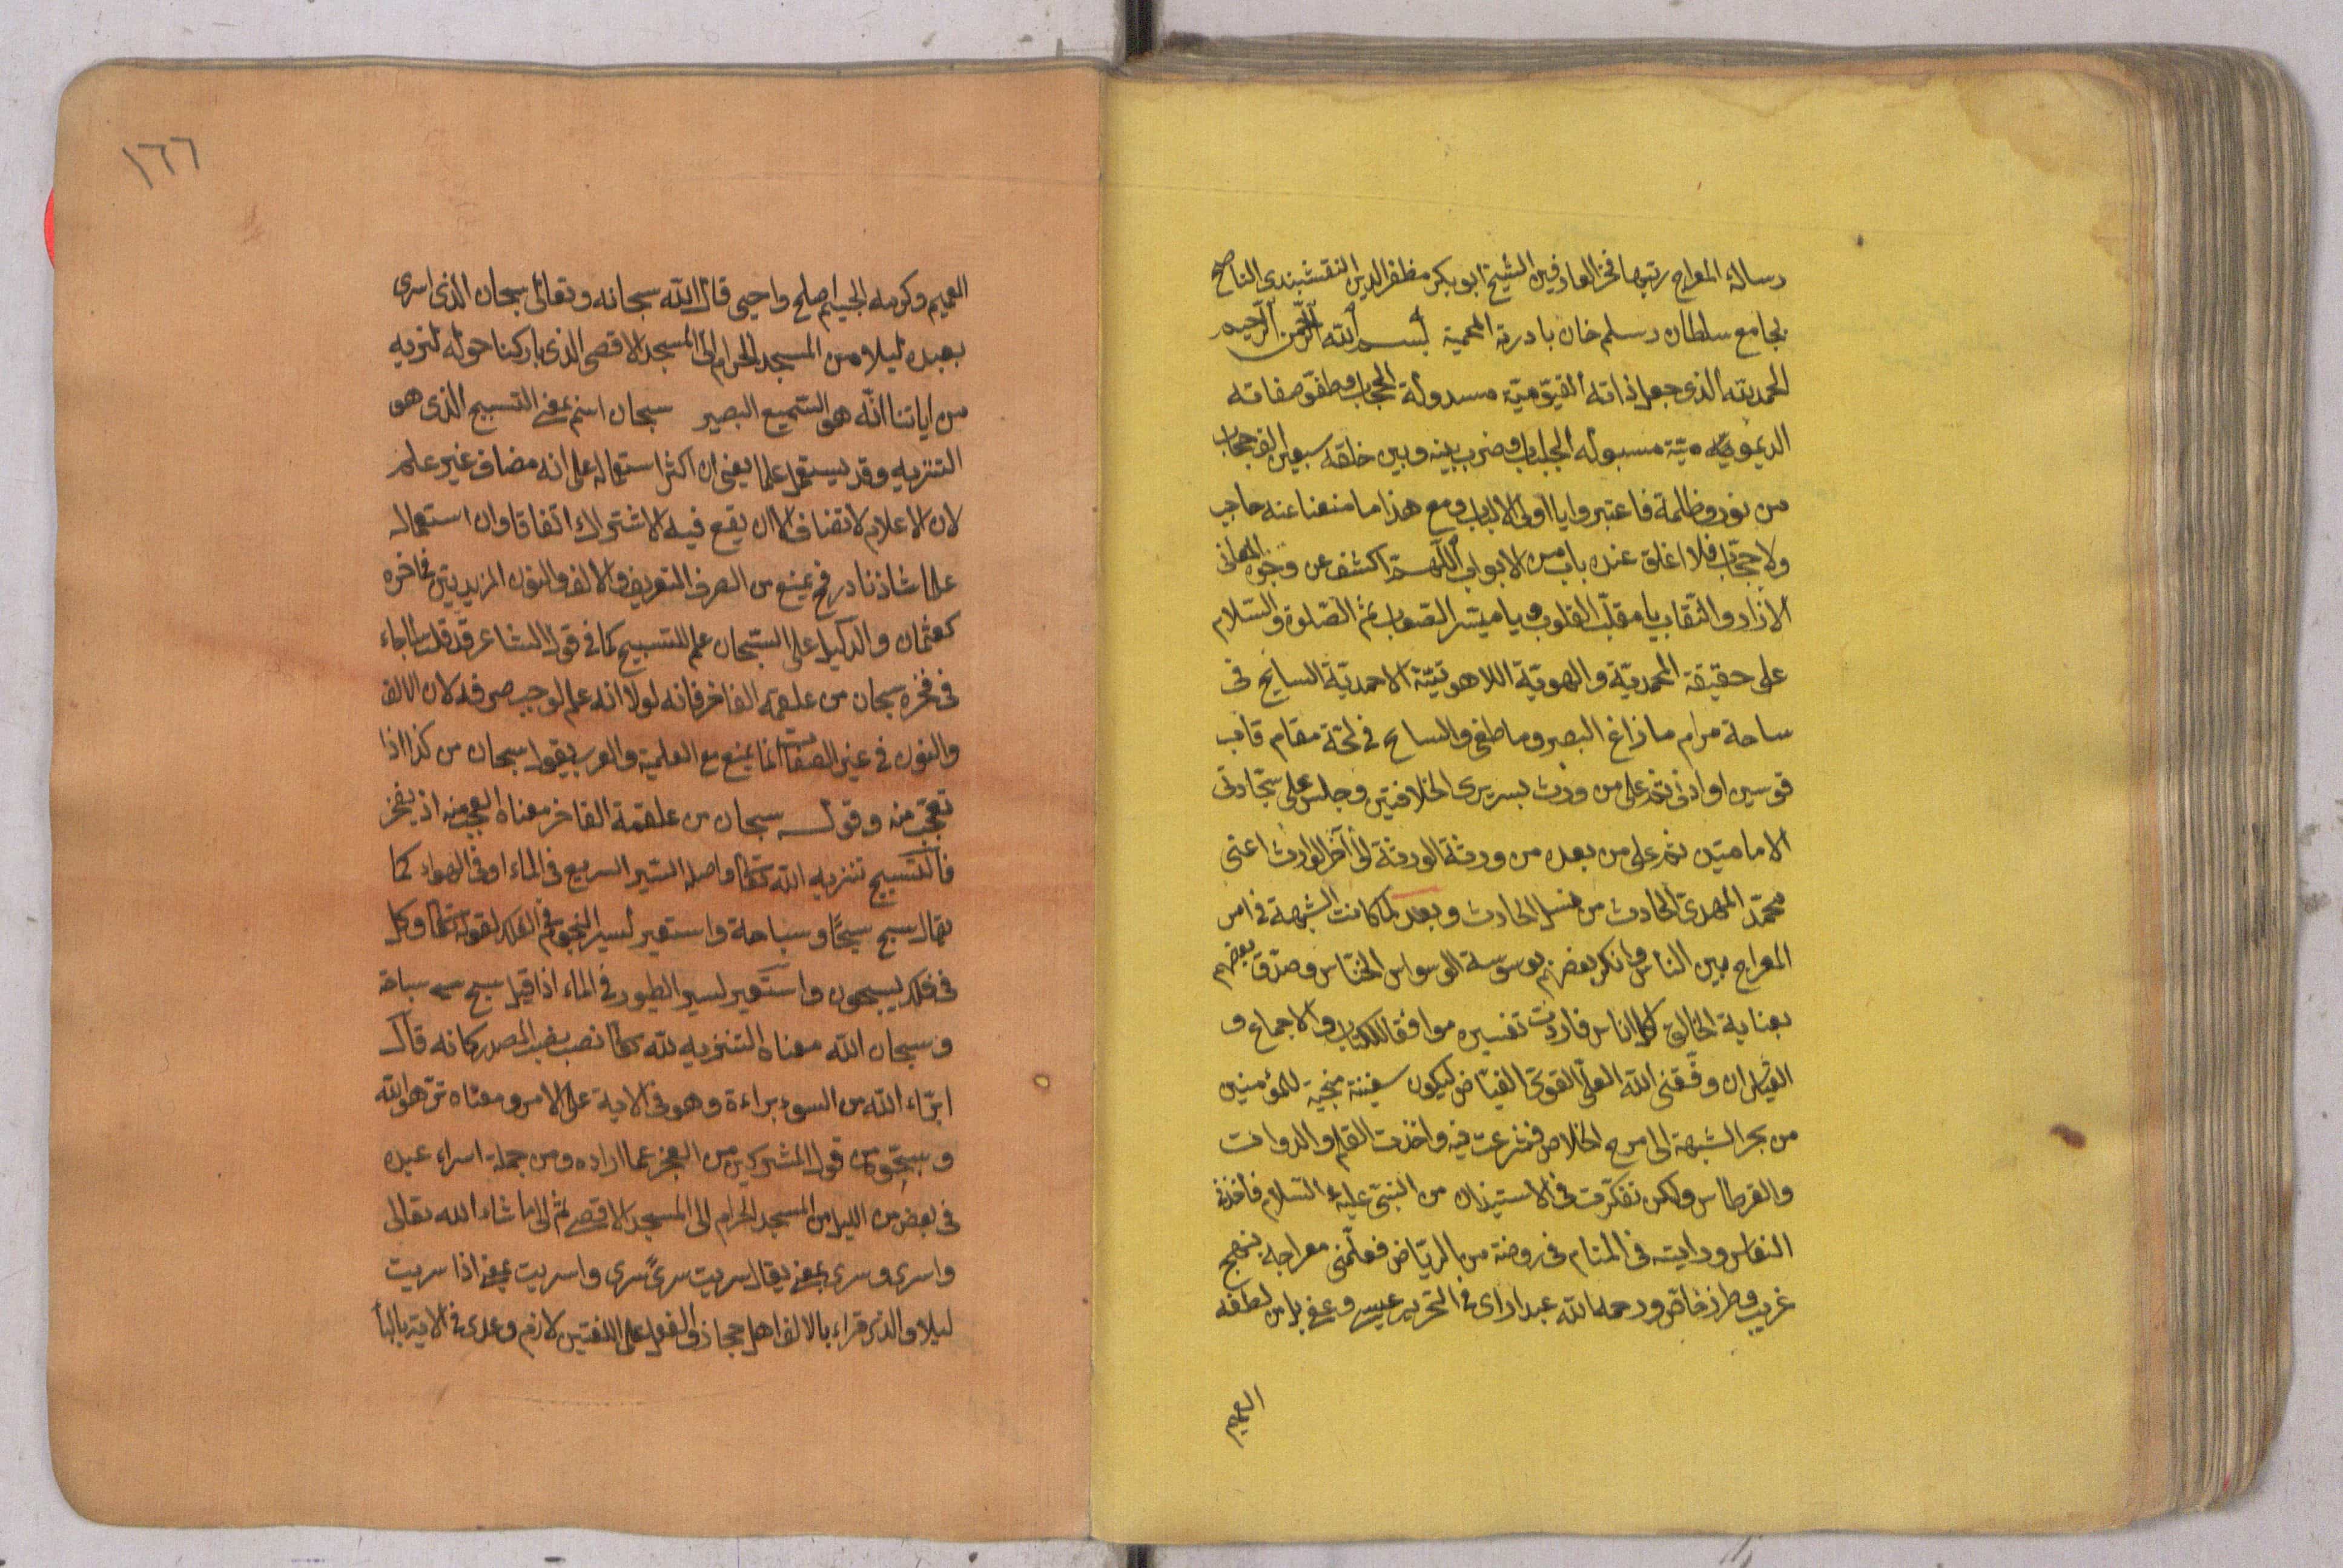 رسالة المعراج رتبها فخر العارفين الشيخ ابو بكر مظفر الدين النقشبندى الناصح
بجامع سلطان سليم خان بادرنة المحمية بسم الله الرحمن الرحيم
الحمد لله الذى جعل ذاته القيوميّة مسدولة الحجاب وطفق صفاته
الديموميّة مسبولة الجلباب وضرب بينه وبين خلقه سبعين الف حجاب
من نور وظلمة فاعتبروا يا اولى الالباب ومع هذا ما منعنا عنه حاجب
ولا حجّاب فلا اغلق عنده باب من الابواب اللّهمّ اكشف عن وجوه المعانى
الازار والنّقاب يا مقلّب القلوب ويا ميسّر الصّواب ثمّ الصّلوة والسّلام
على حقيقة المحمديّة والهويّة اللاهوتيّة الاحمديّة السايح فى
ساحة مرام ما زاغ البصر وما طغى والسابح فى لجّة مقام قاب
قوسين او ادنى ثمّ على من ورث بسريرى الخلافتين وجلس على سجّادتى
الامامتين ثم على من بعده من ورثة الورثة الى آخر الوارث اعنى
محمّد المهدىّ الحادث من نسل الحارث وبعد لما كانت الشبهة فى امر
المعراج بين الناس وانكر بعضهم بوسوسة الوسواس الخنّاس وصدّق بعضهم
بعناية الخالق كل الناس فاردت تفسيره موافقا للكتاب والاجماع و
القياس ان وفّقنى الله العلىّ القوىّ الفيّاض ليكون سفينة منجية للمؤمنين
من بحر الشبهة الى امرح الخلاص فشرعت فيه واخذت القلم والدوات
والقرطاس ولكن تفكّرت فى الاستيذان من النبىّ عليه السّلام فاخذنى
النعاس ورايته فى المنام فى روضة من الرياض فعلّمنى معراجه بنهج
غريب وطرز خاصّ ورحم الله عبدا راى فى التحرير عيبى وعفى بامن لطفه
العميم
١٦٦
العميم وكرمه الجسيم اصلح واحيى قال الله سبحانه وتعالى سبحان الذى اسرى
بعبده ليلا من المسجد الحرام الى المسجد الاقصى الذى باركنا حوله لنريه
من اياتنا انّه هو السّميع البصير سبحان اسم بمعنى التسبيح الذى هو
التنزيه وقد يستعمل علما يعنى ان اكثر استعماله على انه مضاف غير علم
لان الاعلام لا تضاف الا ان يقع فيه الاشتراك اتفاقا وان استعماله
علما شاذ نادر فح يمنع من الصرف التعريف والالف والنون المزيدتين فى اخره
كعثمان والدليل على السّبحان علم للتسبيح كما فى قول الشاعر قد قلت لما جاء
فى فخره سبحان من علقمة الفاخر فانه لولا انه علم لوجب صرفه لان الالف
والنون فى غير الصفات انما يمنع مع العلمية والعرب يقول سبحان من كذا اذا
تعجّب منه وقوله سبحان من علقمة الفاخر معناه العجب منه اذ يفخر
فالتسبيح تنزيه الله تعالى واصله السّير السريع فى الماء او فى الهواء كما
يقال سبح سبحًا وسباحة واستعير لسير النجوم فى الفلك لقوله تعالى وكل
فى فلك يسبحون واستعير لسير الطيور فى الماء اذا قيل سبح سباحة
وسبحان الله معناه التنزيه لله تعالى نصب بضب المصدر كانه قال
ابرّاء الله من السوء براءة وهو فى الاية على الامر ومعناه نزّهوا الله
وسبّحوه من قول المشركين من العجز عما اراده ومن جملة اسراء عبده
فى بعض من الليل من المسجد الحرام الى المسجد الاقصى ثمّ الى ما شاء الله تعالى
واسرى وسرى بمعنى يقال سريت سرىً سرى واسريت بمعنى اذا سريت
ليلا والذى قراء بالالف اهل حجاز والفعل على اللغتين لازم وعدى فى الاية بالبأ